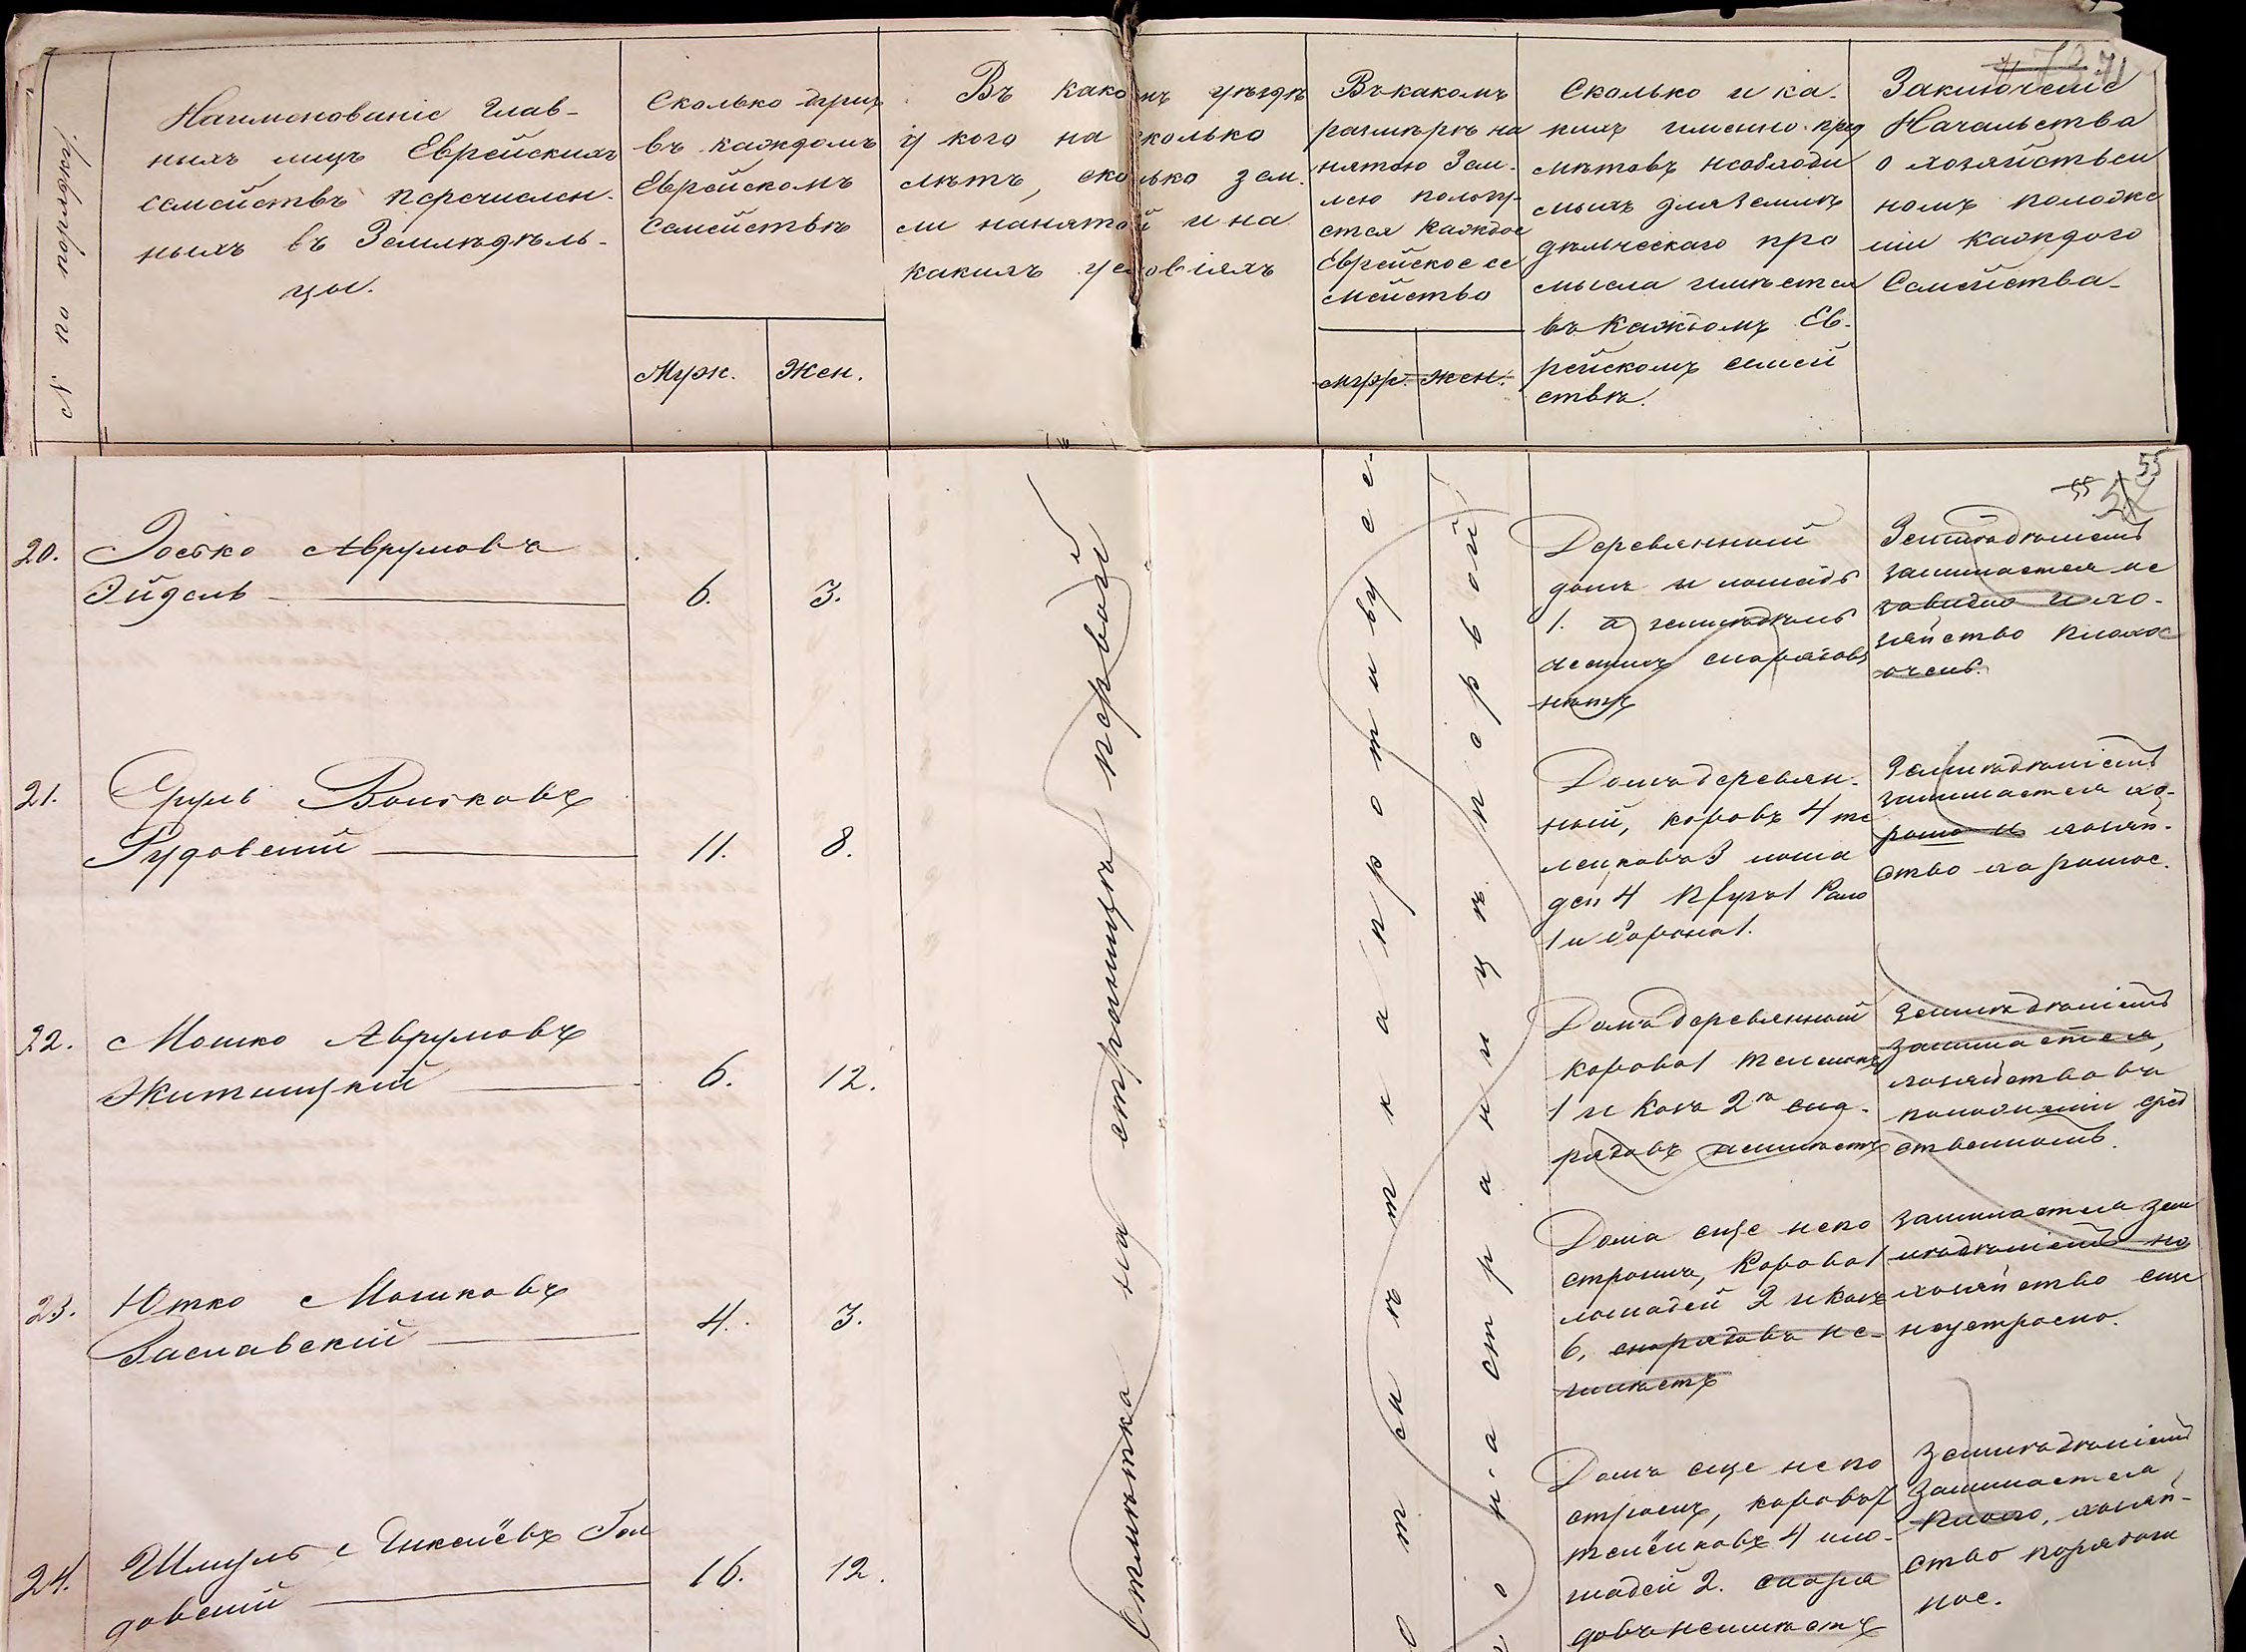 № по порядку.
Наименованіе глав-
ныхъ лицъ Еврейскихъ
семействъ перечислен-
ныхъ въ Земледѣль-
цы.
Сколько душъ
въ каждомъ
Еврейскомъ
семействѣ
Муж. Жен.
Въ какомъ уѣздѣ
у кого на сколько
лѣтъ, сколько зем.
ли нанятой и на
какихъ условіяхъ
Въ какомъ
размѣрѣ на
нятою Зем-
лею пользу-
ется каждое
Еврейское се
мейство
муж. жен.
Сколько и ка-
кихъ именно пред
мѣтовъ необходи
мыхъ для земле
дѣльческаго про
мысла имѣется
въ каждомъ Ев-
рейскомъ семей
ствѣ.
Заключеніе
Начальства
о хозяйствен
номъ положе
ніи каждаго
Семейства
55
20. Іосько Аврумовъ
Эйдель 6. 3.
Деревянный
домъ и лошадь
1. а земледѣль
ческихъ снарядовъ
нѣтъ
Земледѣліемъ
занимается не
завидно и хо-
зяйство плохое
очень.
21. Сруль Вольковъ
Рудовскій 11. 8.
Домъ деревян-
ный, коровъ 4 те
ленковъ 3 лоша
дей 4 плугъ 1 Рало
1 и борона 1.
Земледѣліемъ
занимается хо-
рошо и хозяй-
ство хорошое.
22. Мошко Аврумовъ
Житницкій 6. 12.
Домъ деревянный
корова 1 теленокъ
1 и коза 2 сна-
рядовъ неимѣетъ
Земледѣліемъ
занимается,
хозяйство въ
положеніи сред
ственномъ.
23. Ютко Мошковъ
Заславскій 4. 3.
Дома еще непо
строилъ, корова 1
лошадей 2 и козъ
6, снарядовъ не-
имѣетъ
занимается зем
ледѣліемъ но
хозяйство еще
неустроено.
24. Шмуль Янкелёвъ Гол
довскій 16. 12.
Домъ еще непо
строилъ, коровъ 7
телёнковъ 4 ило-
шадей 2. снаря
довъ неимѣетъ
Земледѣліемъ
занимается
плохо, хозяй-
ство порядоч
ное.
Отмѣтка на страницѣ первой
Отмѣтка противу се
го на страницѣ первой